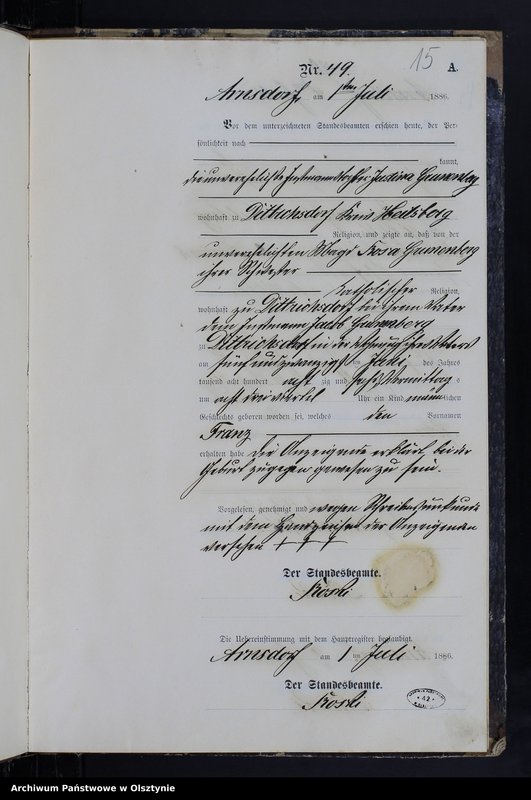 15
Nr. 49.
A.
Arnsdorf, am 1ten Juli 1886.
Vor dem unterzeichneten Standesbeamten erschien heute, der Per-
sönlichkeit nach
kannt,
die unverehelichte
wohnhaft zu Dittrichsdorf Kreis Heilsberg
Religion, und zeigte an, daß von der
unverehelichten Magd Rosa
ihrer Schwester
katholischer Religion,
wohnhaft zu Dittrichsdorf bei ihrem Vater
dem Instmann Jacob
zu Dittrichsdorf in der Wohnung
am fünfundzwanzigsten Juni des Jahres
tausend acht hundert acht zig und sechs Vormittag s
um acht drei viertel Uhr ein Kind männlichen
Geschlechts geboren worden sei, welches den Vornamen
Franz
erhalten habe die Anzeigende erklärt, bei der
Geburt zugegen gewesen zu sein.
Vorgelesen, genehmigt und wegen Schreibensunkunde
mit dem Handzeichen der Anzeigenden
versehen + + +
Der Standesbeamte.
Die Uebereinstimmung mit dem Hauptregister beglaubigt.
Arnsdorf am 1 ten Juli 1886.
Der Standesbeamte.
42
Archiwum Państwowe w Olsztynie